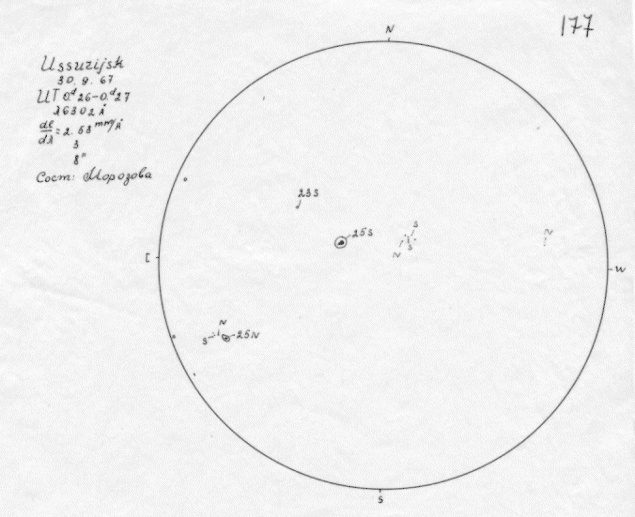 177
N
Ussurijsk
30. 9. 67
UT 0.ᵈ26-0.ᵈ27
λ6302 Å
dl/dλ = 2.63 mm/Å
3
8"
Сост: Морозова
23S
25S
S
N
S
N
E
W
N
S
25N
S